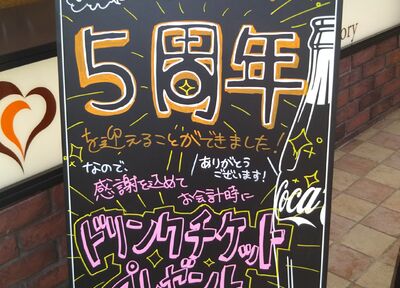 5周年
を迎えることができました!
ありがとう
ございます!
なので、
感謝を込めて
お会計時に
ドリンクチケット
プレゼント
Coca
ory